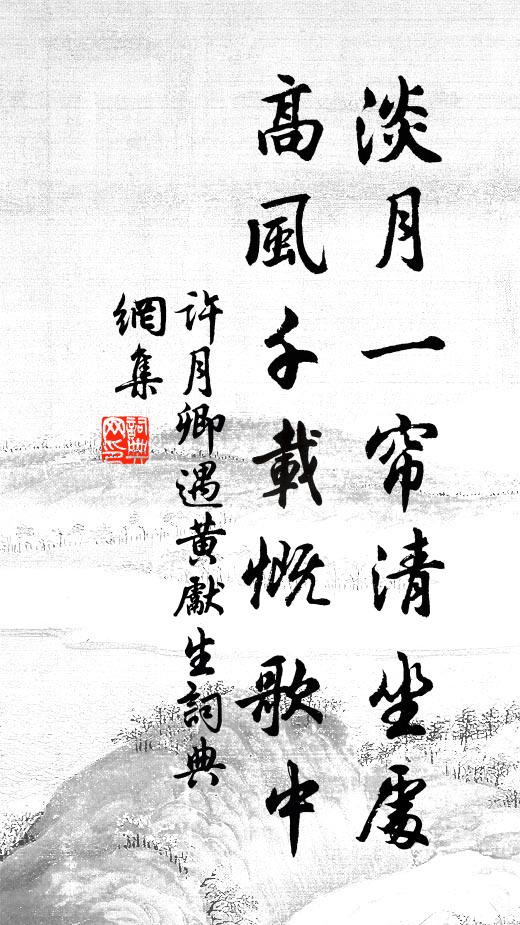 淡月一帘清坐處
高風千載慨歌中
許月卿遇黄獻生詞典
網集
詞典網